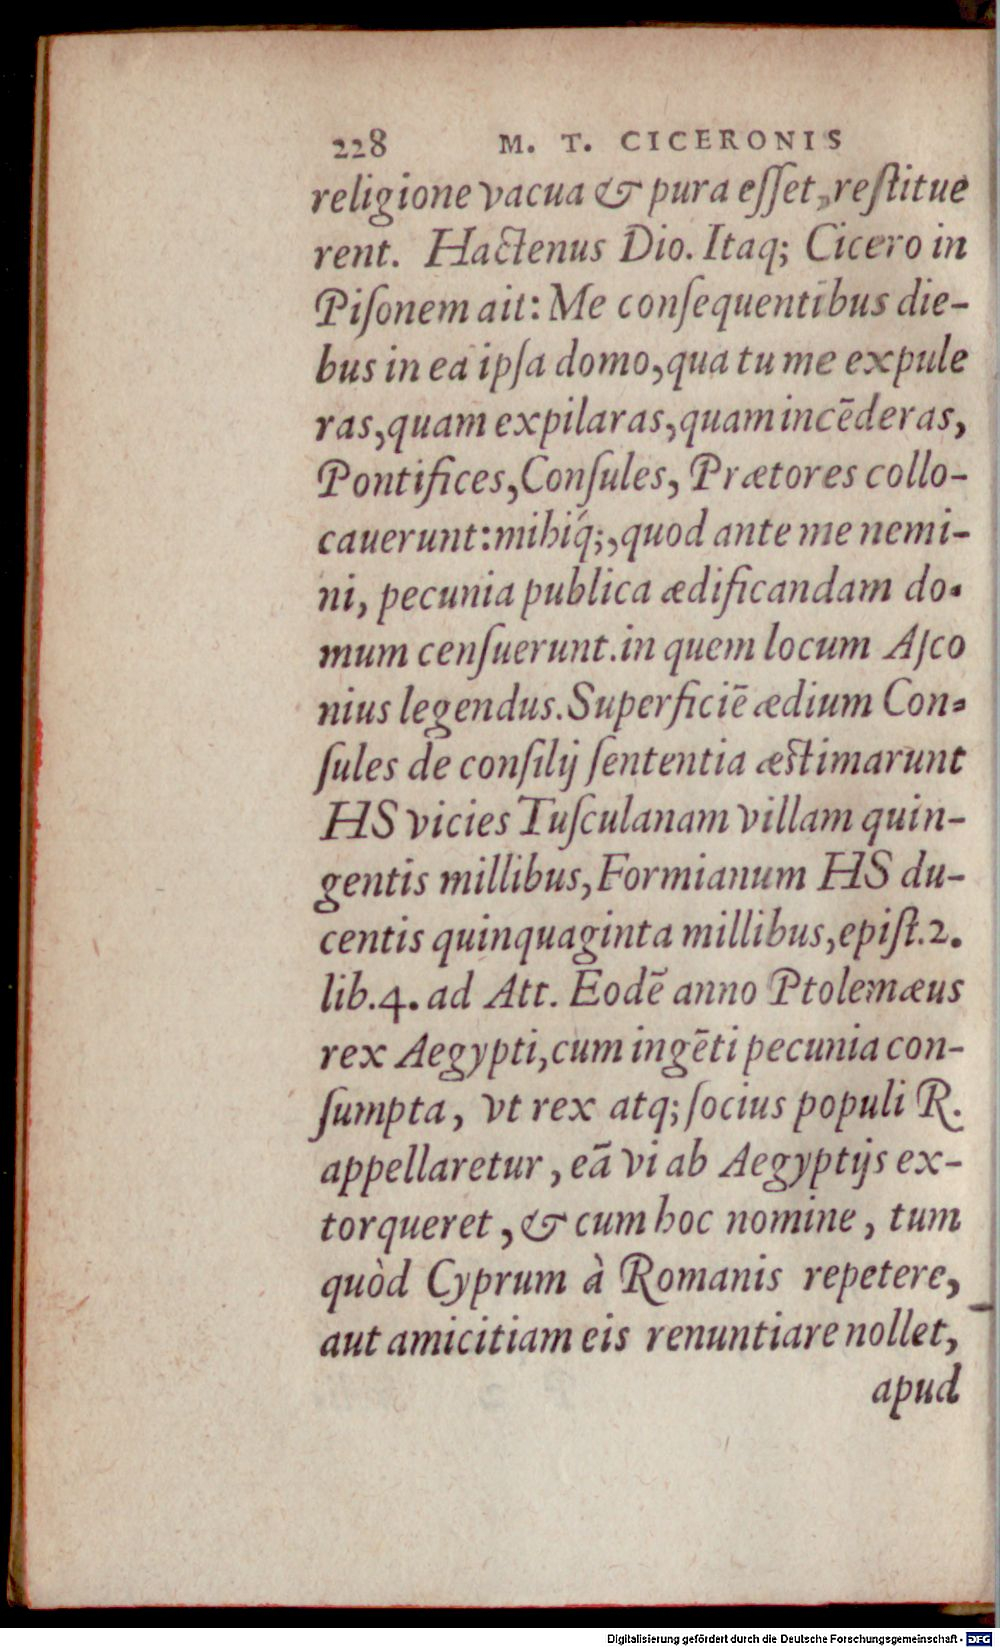 228 M. T. CICERONIS
religione vacua & pura eſſet, reſtitue
rent. Hactenus Dio. Itaq; Cicero in
Piſonem ait: Me conſequentibus die-
bus in ea ipſa domo, qua tu me expule
ras, quam expilaras, quam incēderas,
Pontifices, Conſules, Prætores collo-
cauerunt: mihiq́;, quod ante me nemi-
ni, pecunia publica ædificandam do-
mum cenſuerunt. in quem locum Aſco
nius legendus. Superficiē ædium Con-
ſules de conſilij ſententia æstimarunt
HS vicies Tuſculanam villam quin-
gentis millibus, Formianum HS du-
centis quinquaginta millibus, epiſt. 2.
lib. 4. ad Att. Eodē anno Ptolemæus
rex Aegypti, cum ingēti pecunia con-
ſumpta, vt rex atq; ſocius populi R.
appellaretur, eā vi ab Aegyptijs ex-
torqueret, & cum hoc nomine, tum
quòd Cyprum à Romanis repetere,
aut amicitiam eis renuntiare nollet,
apud
Digitalisierung gefördert durch die Deutsche Forschungsgemeinschaft - DFG